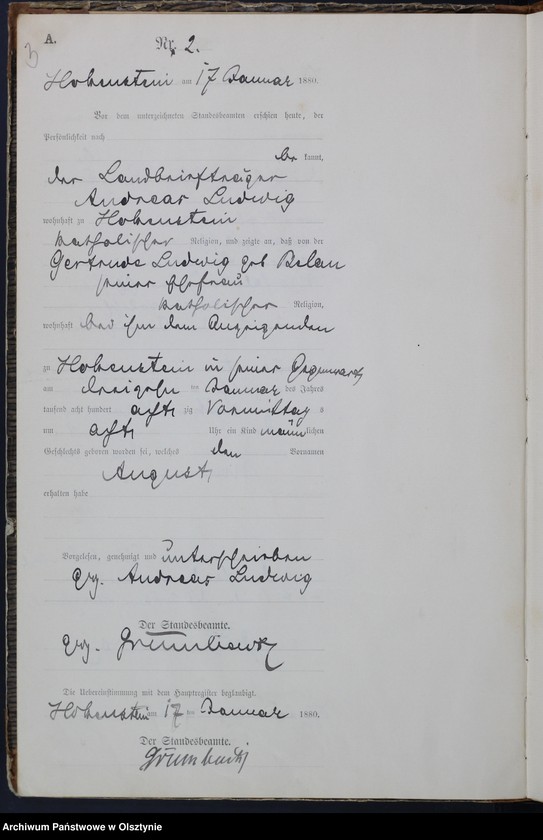 A.
B
Nr. 2.
Hohenstein am 17 Januar 1880.
Vor dem unterzeichneten Standesbeamten erschien heute, der
Persönlichkeit nach
be kannt,
der Landbriefträger
Andreas Ludwig
wohnhaft zu Hohenstein
katholischer Religion, und zeigte an, daß von der
Gertrude Ludwig geb Belau
seiner Ehefrau
katholischer Religion,
wohnhaft bei ihm dem Anzeigenden
zu Hohenstein in seiner Gegenwart
am dreizehn ten Januar des Jahres
tausend acht hundert acht zig Vormittag s
um acht Uhr ein Kind männlichen
Geschlechts geboren worden sei, welches den Vornamen
August
erhalten habe
Vorgelesen, genehmigt und unterschrieben
gez. Andreas Ludwig
Der Standesbeamte.
gez.
Die Uebereinstimmung mit dem Hauptregister beglaubigt.
Hohenstein am 17 ten Januar 1880.
Der Standesbeamte.
Archiwum Państwowe w Olsztynie